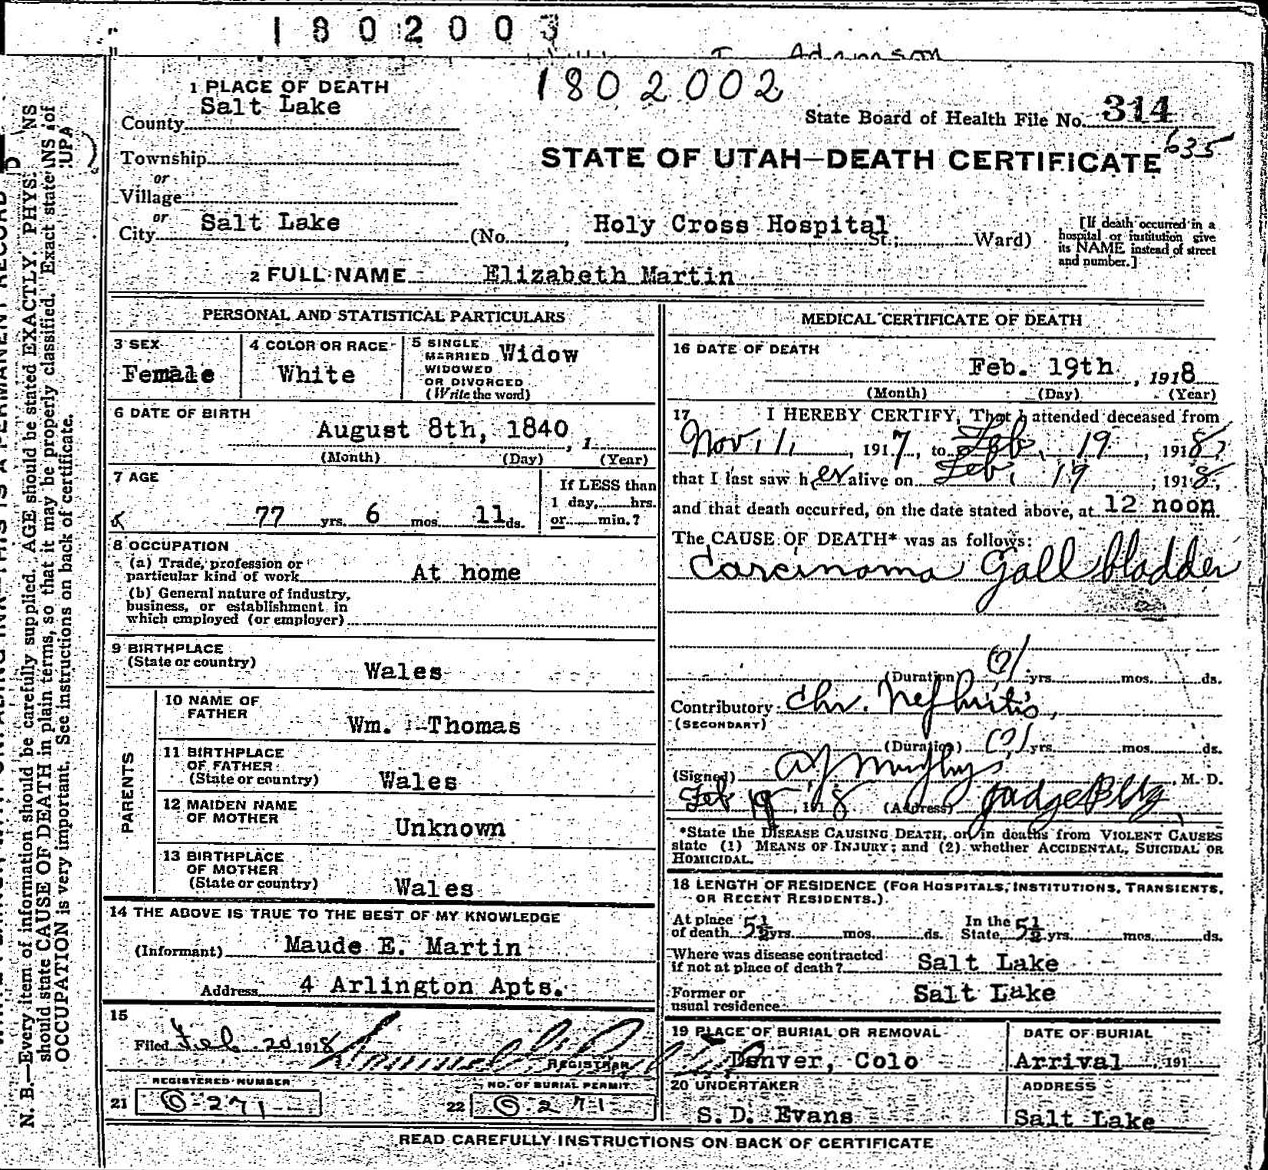 1802003
Adamson
1802002
1 PLACE OF DEATH
County Salt Lake
State Board of Health File No. 314
635
Township
or
Village
or
City Salt Lake (No. , Holy Cross Hospital St.; Ward)
STATE OF UTAH—DEATH CERTIFICATE
[If death occurred in a hospital or institution give its NAME instead of street and number.]
2 FULL NAME Elizabeth Martin
PERSONAL AND STATISTICAL PARTICULARS
3 SEX
Female
4 COLOR OR RACE
White
5 SINGLE
MARRIED
WIDOWED
OR DIVORCED
(Write the word)
Widow
6 DATE OF BIRTH
August 8th, 1840, 1
(Month) (Day) (Year)
7 AGE
77 yrs. 6 mos. 11 ds.
If LESS than
1 day, hrs.
or min.?
8 OCCUPATION
(a) Trade, profession or
particular kind of work At home
(b) General nature of industry,
business, or establishment in
which employed (or employer)
9 BIRTHPLACE
(State or country)
Wales
PARENTS
10 NAME OF
FATHER
Wm. Thomas
11 BIRTHPLACE
OF FATHER
(State or country)
Wales
12 MAIDEN NAME
OF MOTHER
Unknown
13 BIRTHPLACE
OF MOTHER
(State or country)
Wales
14 THE ABOVE IS TRUE TO THE BEST OF MY KNOWLEDGE
(Informant) Maude E. Martin
Address 4 Arlington Apts.
15
Filed Feb 20 1918
REGISTRAR
REGISTERED NUMBER
21 0-271
NO. OF BURIAL PERMIT
22 0-271
MEDICAL CERTIFICATE OF DEATH
16 DATE OF DEATH
Feb. 19th, 1918
(Month) (Day) (Year)
17 I HEREBY CERTIFY, That I attended deceased from
Nov. 1, 1917, to Feb. 19, 1918,
that I last saw her alive on Feb. 19, 1918,
and that death occurred, on the date stated above, at 12 noon
The CAUSE OF DEATH* was as follows:
Carcinoma Gall bladder
(Duration) (?) yrs. mos. ds.
Contributory Chr. Nephritis,
(SECONDARY)
(Duration) (?) yrs. mos. ds.
(Signed) Murphy, M. D.
Feb 19, 1918 (Address) Judge Bldg
*State the DISEASE CAUSING DEATH, or, in deaths from VIOLENT CAUSES
state (1) MEANS OF INJURY; and (2) whether ACCIDENTAL, SUICIDAL OR
HOMICIDAL.
18 LENGTH OF RESIDENCE (FOR HOSPITALS, INSTITUTIONS, TRANSIENTS,
OR RECENT RESIDENTS.)
At place
of death 5½ yrs. mos. ds.
In the
State 5½ yrs. mos. ds.
Where was disease contracted
if not at place of death? Salt Lake
Former or
usual residence Salt Lake
19 PLACE OF BURIAL OR REMOVAL
Denver, Colo
DATE OF BURIAL
Arrival, 191
20 UNDERTAKER
S. D. Evans
ADDRESS
Salt Lake
READ CAREFULLY INSTRUCTIONS ON BACK OF CERTIFICATE
N. B.—Every item of information should be carefully supplied. AGE should be stated EXACTLY. PHYS
should state CAUSE OF DEATH in plain terms, so that it may be properly classified. Exact state
OCCUPATION is very important. See instructions on back of certificate.